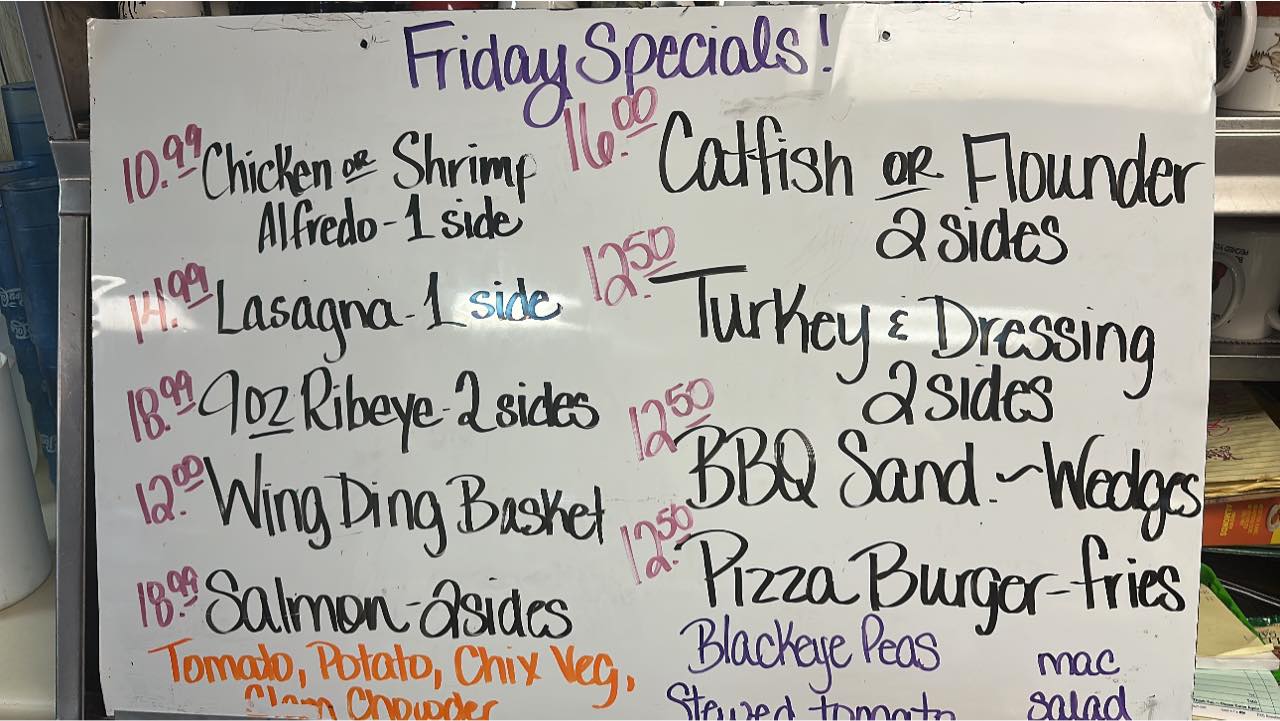 Friday Specials!
10.99 Chicken OR Shrimp
Alfredo - 1 side
14.99 Lasagna - 1 side
18.99 9oz Ribeye - 2 sides
12.00 Wing Ding Basket
18.99 Salmon - 2 sides
Tomato, Potato, Chix Veg,
Clam Chowder
16.00 Catfish OR Flounder
2 sides
12.50 Turkey & Dressing
2 sides
12.50 BBQ Sand. ~ Wedges
12.50 Pizza Burger - fries
Blackeye Peas
Stewed tomato
mac
salad